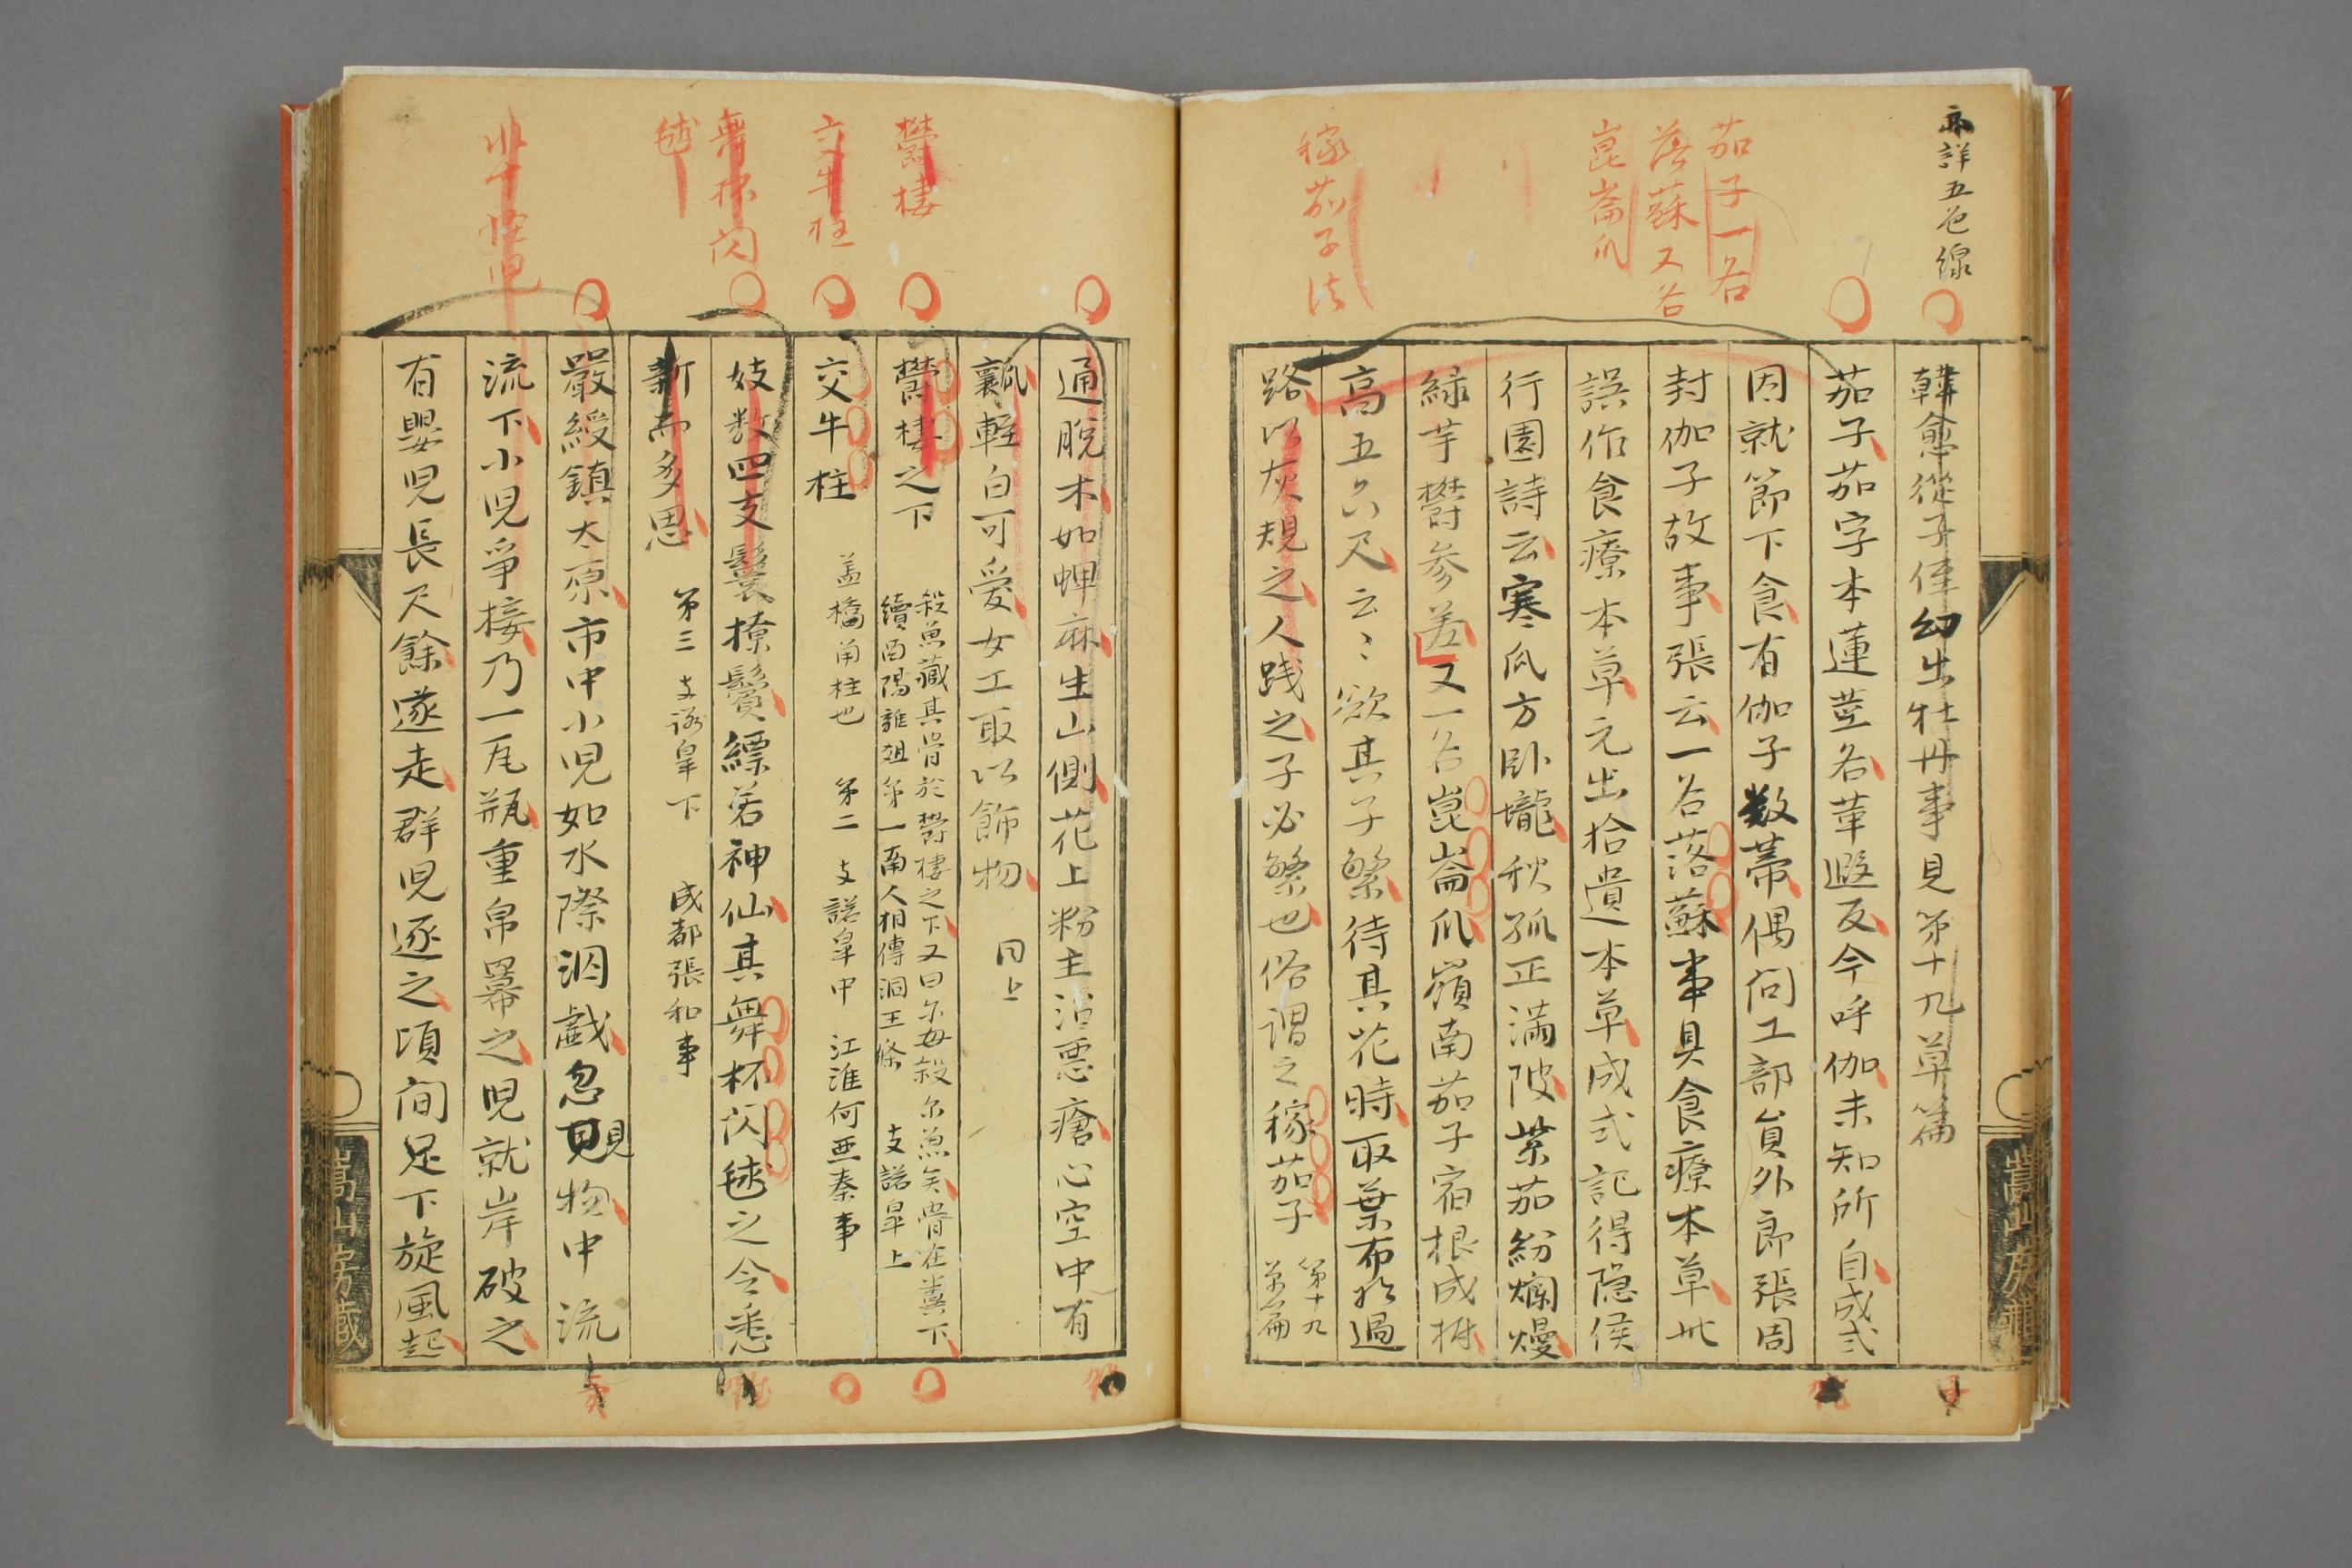 亦詳五色線
茄子一名
落蘇又名
崑崙爪
稼茄子法
韓愈從子侄幻出牡丹事見第十九草篇
茄子茄字本蓮莖名革遐反今呼伽未知所自成式
因就節下食有伽子数蒂偶问工部貟外郎張周
封伽子故事張云一名落蘇事具食療本草此
誤作食療本草元出拾遺本草成式記得隐侯
行園詩云寒瓜方卧壠秋孤正滿陂紫茄紛爛熳
緑芋欝参差又一名崑崙爪嶺南茄子宿根成樹
高五六尺云〻欲其子繁待其花時取葉布於過
路以灰規之人践之子必繁也俗謂之稼茄子
第十九
草篇
嵩山房藏
欝棲
交牛柱
舞杯闪
毬
半嬰児
通脫木如蜱麻生山側花上粉主治悪瘡心空中有
瓤輕白可爱女工取以飾物 同上
欝棲之下
殺魚藏其骨於欝棲之下又曰尔毎殺尔魚矣骨在糞下
續酉陽雜俎第一南人相傳洞王條 支諾皐上
交牛柱 盖橋甫柱也 第二 支諾皐中 江淮何亜秦事
妓数四支鬟撩鬢縹若神仙其舞杯闪毬之令悉
新而多思 第三 支諾皐下 成都張和事
嚴綬鎮太原市中小児如水際泅戲忽見物中流
流下小児爭接乃一瓦瓶重帛冪之児就岸破之
有嬰児長尺餘遂走群児逐之頃间足下旋風起
嵩山房藏